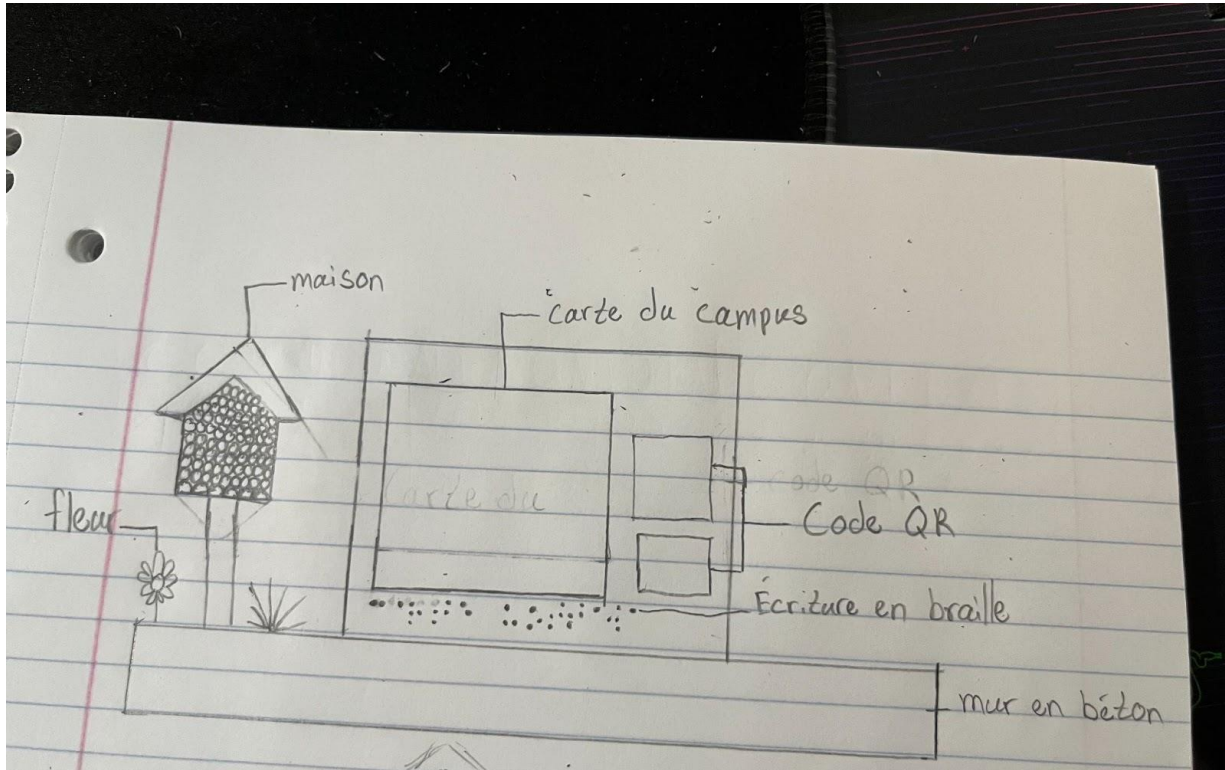 maison
carte du campus
fleur
Carte du
code QR
Code QR
Écriture en braille
mur en béton